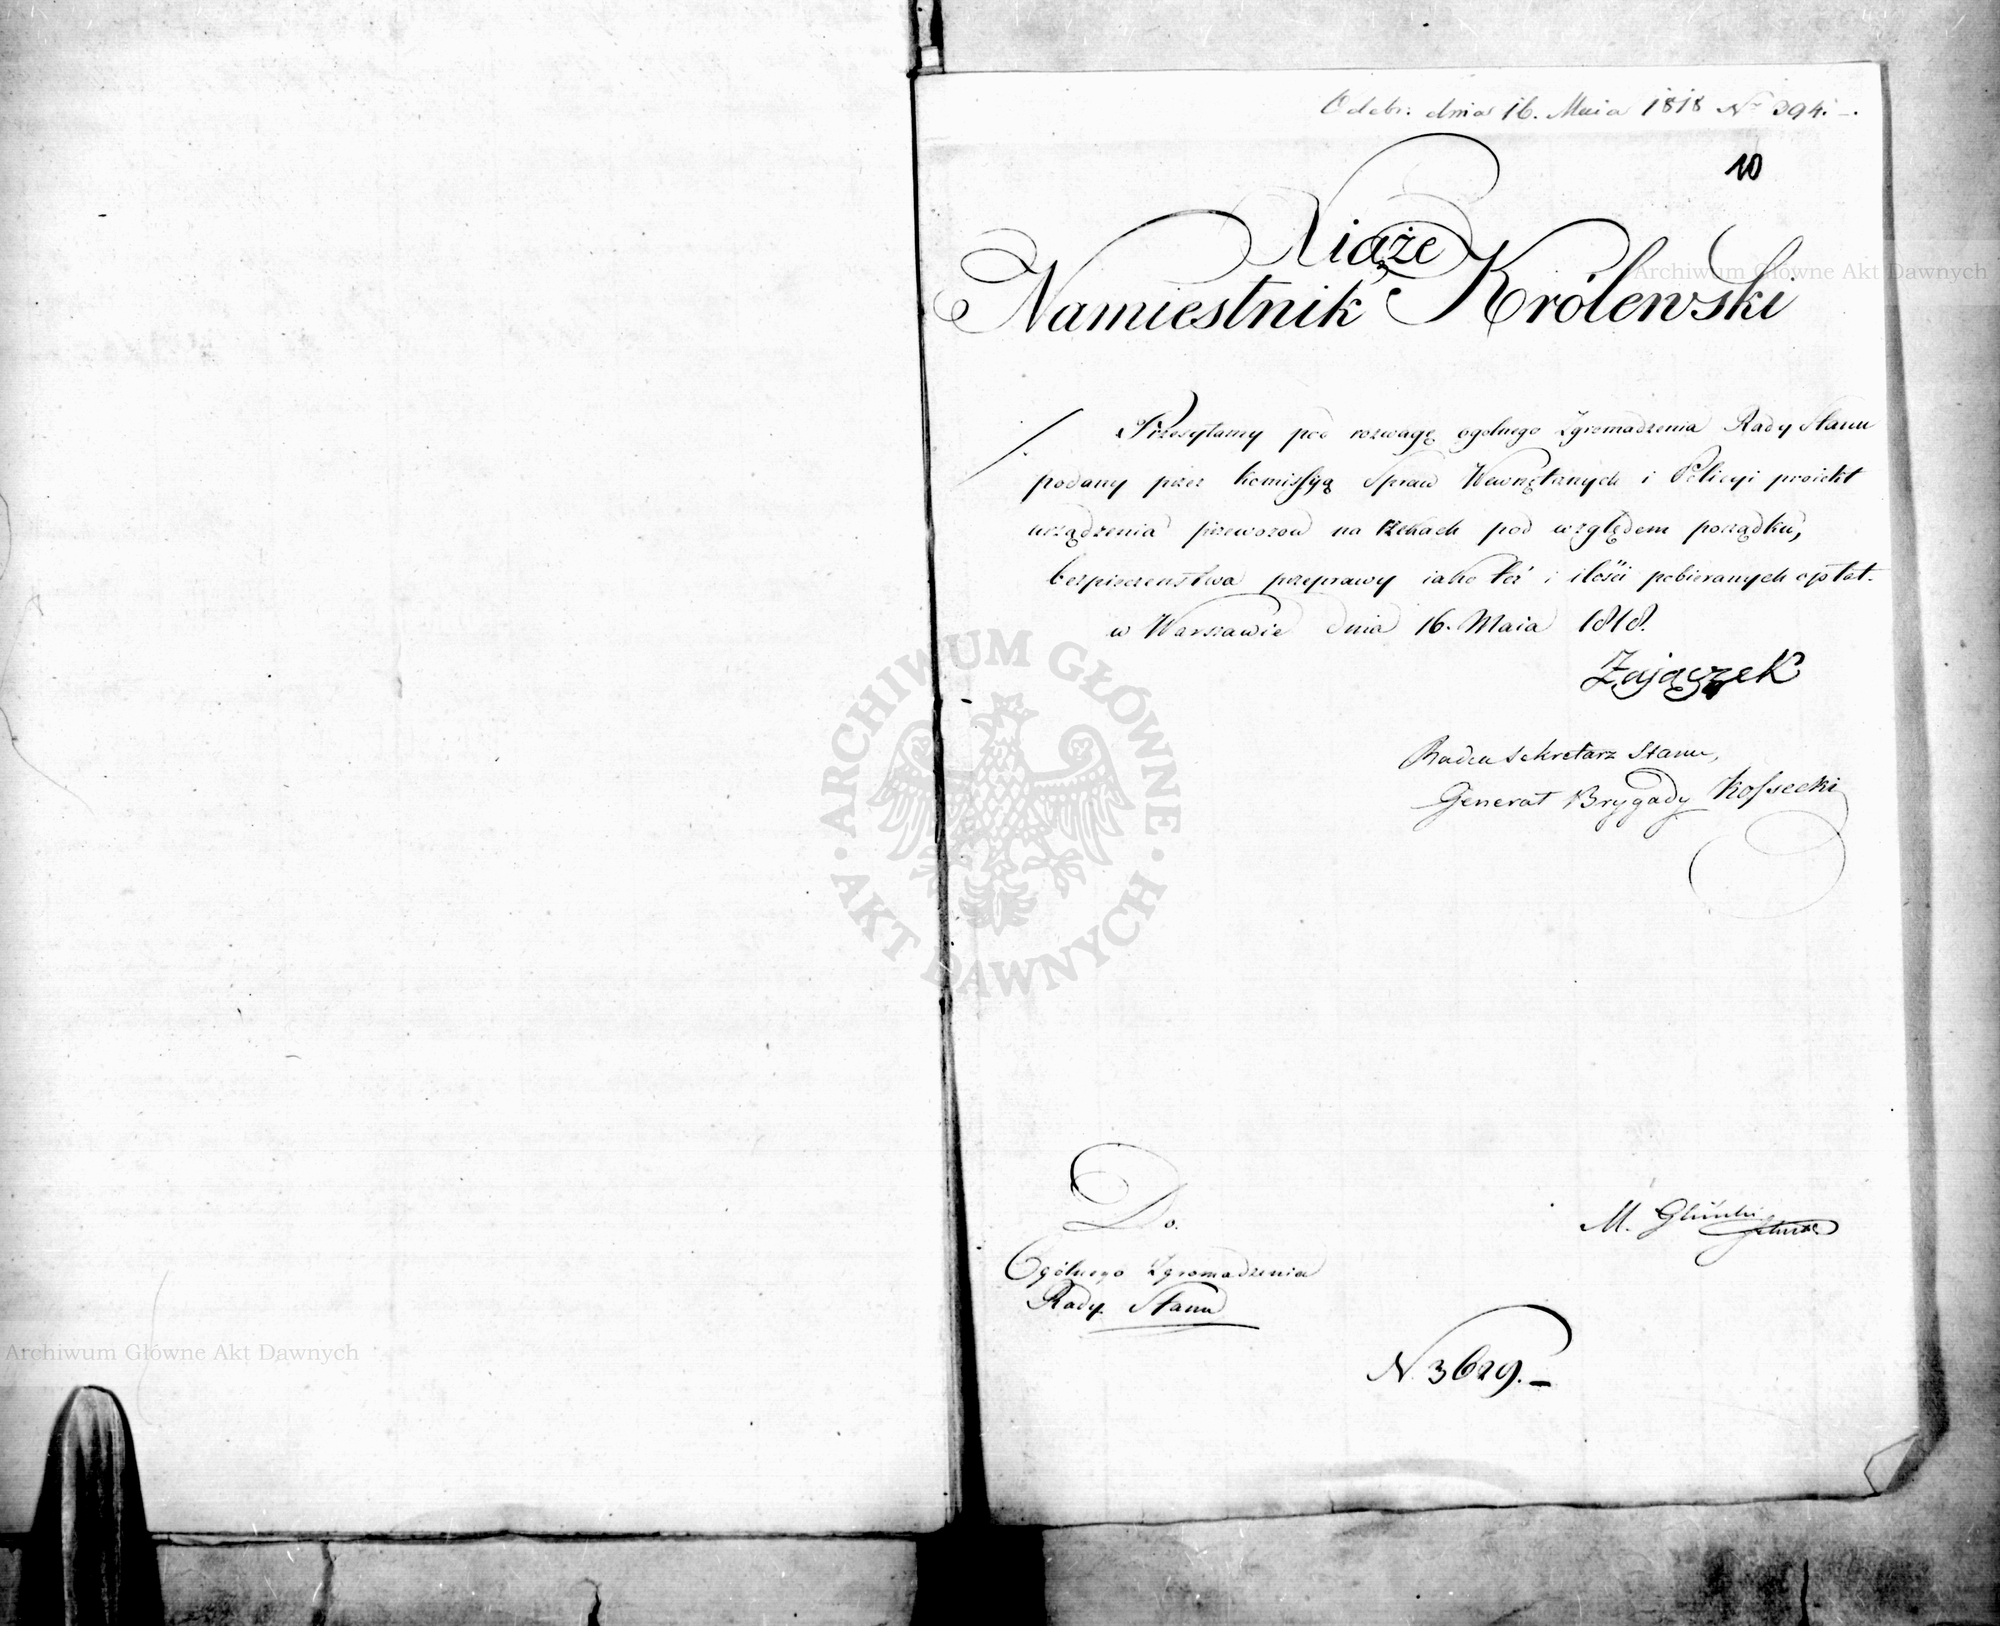 Odebr: dnia 16. Maia 1818 Nr 394. –.
10
Xiąże
Namiestnik Królewski
Przesyłamy pod rozwagę ogolnego Zgromadzenia Rady Stanu
podany przez Komissyą Spraw Wewnętrznych i Policyi proiekt
urządzenia przewozow na rzekach pod względem porządku,
bezpieczenstwa przeprawy iako też i ilości pobieranych opłat.
w Warszawie dnia 16. Maia 1818.
Zajączek
Radca Sekretarz Stanu,
Generał Brygady Kossecki
Do.
Ogólnego Zgromadzenia
Rady Stanu
M.
N. 3629. –
ARCHIWUM GŁÓWNE AKT DAWNYCH
Archiwum Główne Akt Dawnych
Archiwum Główne Akt Dawnych